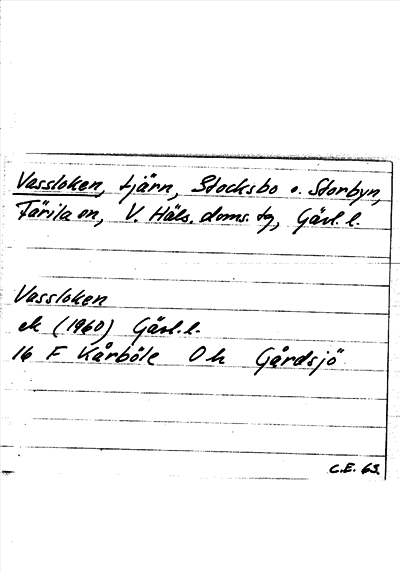 Vassloken, tjärn, Stocksbo o. Storbyn,
Färila sn, V. Häls. doms. tg, Gävl. l.
Vassloken
ek (1960) Gävl. l.
16 F Kårböle 0 h Gårdsjö
C.E. 63.